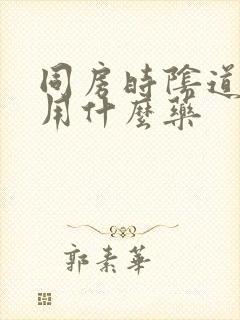 同房時陰道
用什麼藥
郭素華